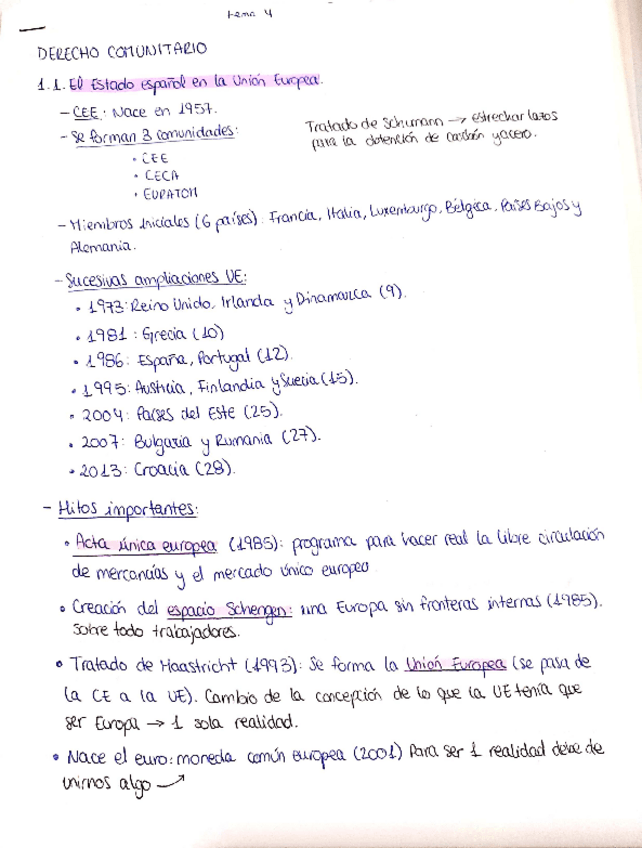 tema 4
DERECHO COMUNITARIO
1.1. El Estado español en la Unión Europea.
- CEE: Nace en 1957.
- Se forman 3 comunidades:
Tratado de Schumann → estrechar lazos
para la obtención de carbón y acero.
• CEE
• CECA
• EURATOM
- Miembros iniciales (6 países). Francia, Italia, Luxemburgo, Bélgica, Países Bajos y
Alemania.
- Sucesivas ampliaciones UE:
• 1973: Reino Unido, Irlanda y Dinamarca (9).
• 1981: Grecia (10)
• 1986: España, Portugal (12).
• 1995: Austria, Finlandia y Suecia (15).
• 2004: Países del Este (25).
• 2007: Bulgaria y Rumania (27).
• 2013: Croacia (28).
- Hitos importantes:
• Acta única europea (1985): programa para hacer real la libre circulación
de mercancías y el mercado único europeo
• Creación del espacio Schengen: una Europa sin fronteras internas (1985).
sobre todo trabajadores.
• Tratado de Maastricht (1993): Se forma la Unión Europea (se pasa de
la CE a la UE). Cambio de la concepción de lo que la UE tenía que
ser Europa → 1 sola realidad.
• Nace el euro: moneda común europea (2001) Para ser 1 realidad debe de
unirnos algo →